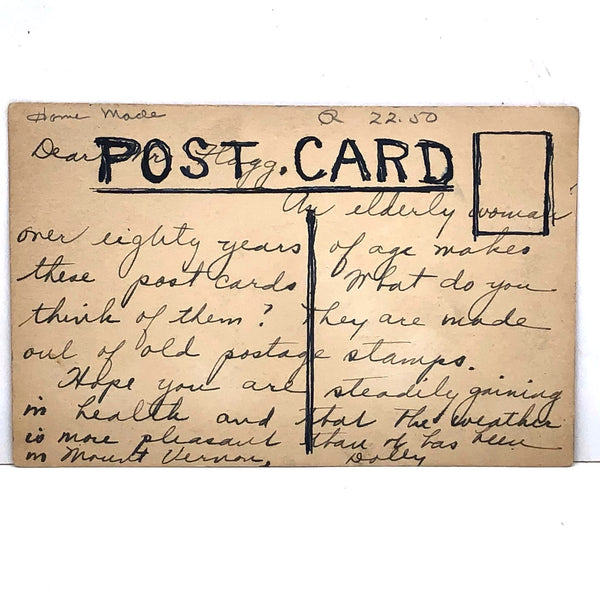 Home Made R 22.50
POST.CARD
Dear Mr. Flagg.
An elderly woman
over eighty years of age makes
these post cards What do you
think of them? They are made
out of old postage stamps.
Hope you are steadily gaining
in health and that the weather
is more pleasant than it has been
in Mount Vernon. Dolly